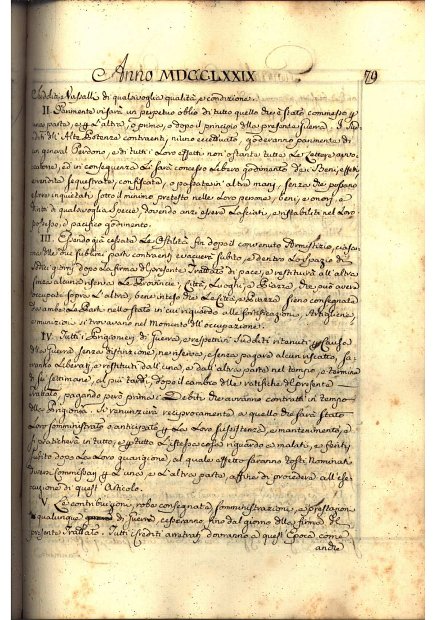 Anno MDCCLXXIX 79
Sudditi, e Vassalli di qualsivoglia qualità, e condizione.
II. Parimente vi sarà un perpetuo oblio di tutto quello che è stato commesso
una parte, e l'altra, o prima, o dopo il principio della presente Guerra. I Sud-
diti dell'Alte Potenze contraenti, niuno eccettuato, goderanno parimente di
un general Perdono, e di tutti i Loro effetti non ostante tutte Le Lettere avo-
catorie, ed in conseguenza Li sarà concesso Libero godimento de i Beni, effetti
e rendite sequestrate, confiscate, o passate in altre mani, senza che possano
essere inquietati sotto il minimo pretesto nelle Loro persone, beni, e onori, e
di qualsivoglia specie dovendo anzi essere Lasciati, e ristabiliti nel Loro
possesso, e pacifico godimento.
III. Essendo già cessate Le Ostilità fin dopo il convenuto Armistizio, ciascu-
na delle due sublimi parti contraenti evacuerà subito, e dentro Lo spazio di
sedici giorni dopo La firma del presente Trattato di pace, e restituirà all'altra
senza alcuna riserva Le Provincie, Città, Luoghi, e Piazze, che può avere
occupate sopra L'altra, bene inteso che La Città, e Piazza sieno consegnate
da ambe Le Parti nello stato in cui riguardo alle fortificazioni, Artiglierie,
e munizioni si trovavano nel Momento dell'occupazione.
IV. Tutti i Prigionieri di Guerra, e respettivi Sudditi ritenuti Causa
della Guerra, senza distinzione, ne riserva, e senza pagare alcun riscatto, sa-
ranno Liberati, e restituiti dall'una, e dall'altra parte nel tempo, e termine
di sei settimane, al più tardi, dopo il cambio delle ratifiche del presente
Trattato, pagando però prima i Debiti che avranno contratti in tempo
della Prigionia. Si rinunzierà reciprocamente a quello che sarà stato
Loro somministrato o anticipato La Loro sussistenza, e mantenimento, e
si praticherà in tutto, e tutto L'istessa cosa riguardo a malati, e feriti
subito dopo La Loro guarigione, al quale effetto saranno tosto Nominati
diversi Commissarj L'una, e L'altra parte, affine di procedere all'ese-
cuzione di questo Articolo.
V. Le contribuzioni, robe consegnate, somministrazioni, e prestazioni
qualunque di Guerra, cesseranno fino dal giorno della firma del
presente Trattato. Tutti i crediti arretrati dovranno a quest'Epoca come
anche